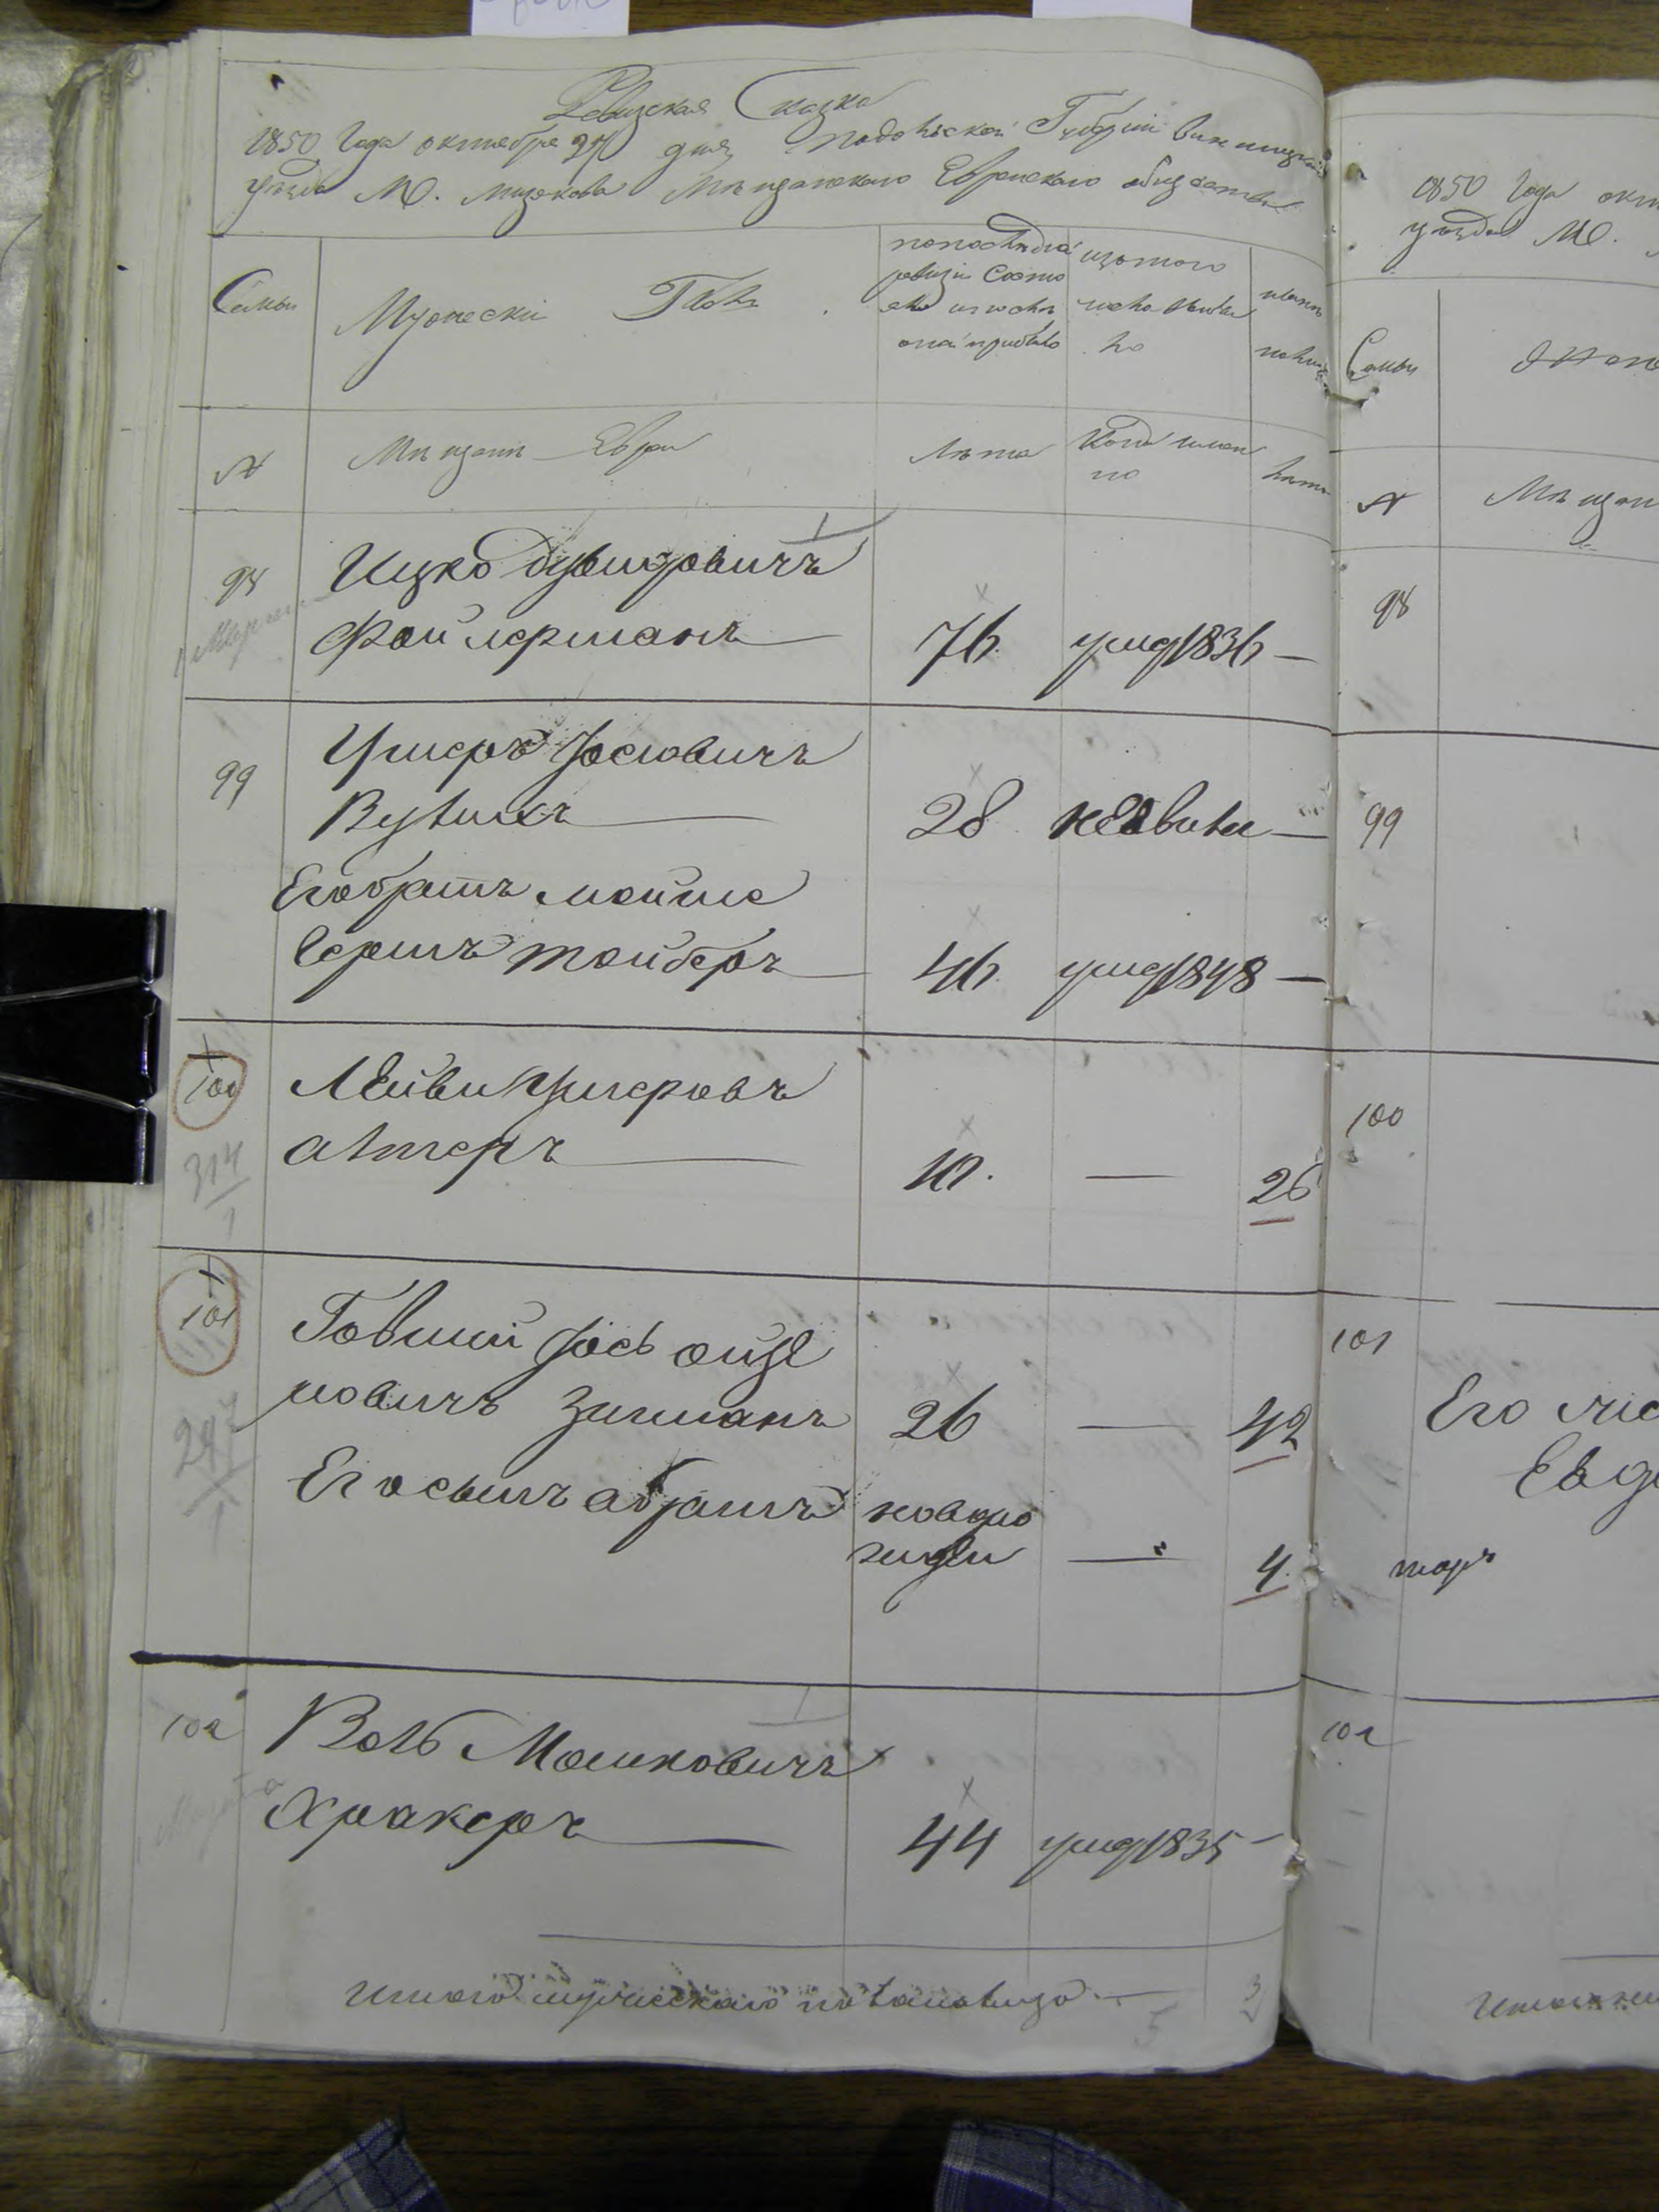 Ревизская Сказка
1850 Года октебря 27 дня Подольской Губернии Винницкой
уезда М. Мизякова Мещанского Еврейского общества
Семьи
Мужеский Полъ
по последней
ревизии Состо
яло и после
оной прибыло
изъ того
числа выбы
ло
ныне
№
Мещане Евреи
Лета
Когда имен
но
лета
98
Ицко Дувидовичъ
Файлерманъ
76
умер 1836
99
Ушеръ Јосіовичъ
Вулихъ
28
не явилс
Его братъ Мойше
Гершъ Тойберъ
46
умер 1848
100
Лейви Ушеровъ
Алтеръ
10.
26
101
Говшій Јось Ойзе
ровичъ Зигманъ
26
42
Его сынъ Абрамъ
новоро
жден
4.
102
Воль Мошковичъ
Хракеръ
44
умер 1835
Итого мужескаго пола на лицо
3
1850 Года окт
уезда М.
Семьи
№
Мещан
98
99
100
101
Его
102